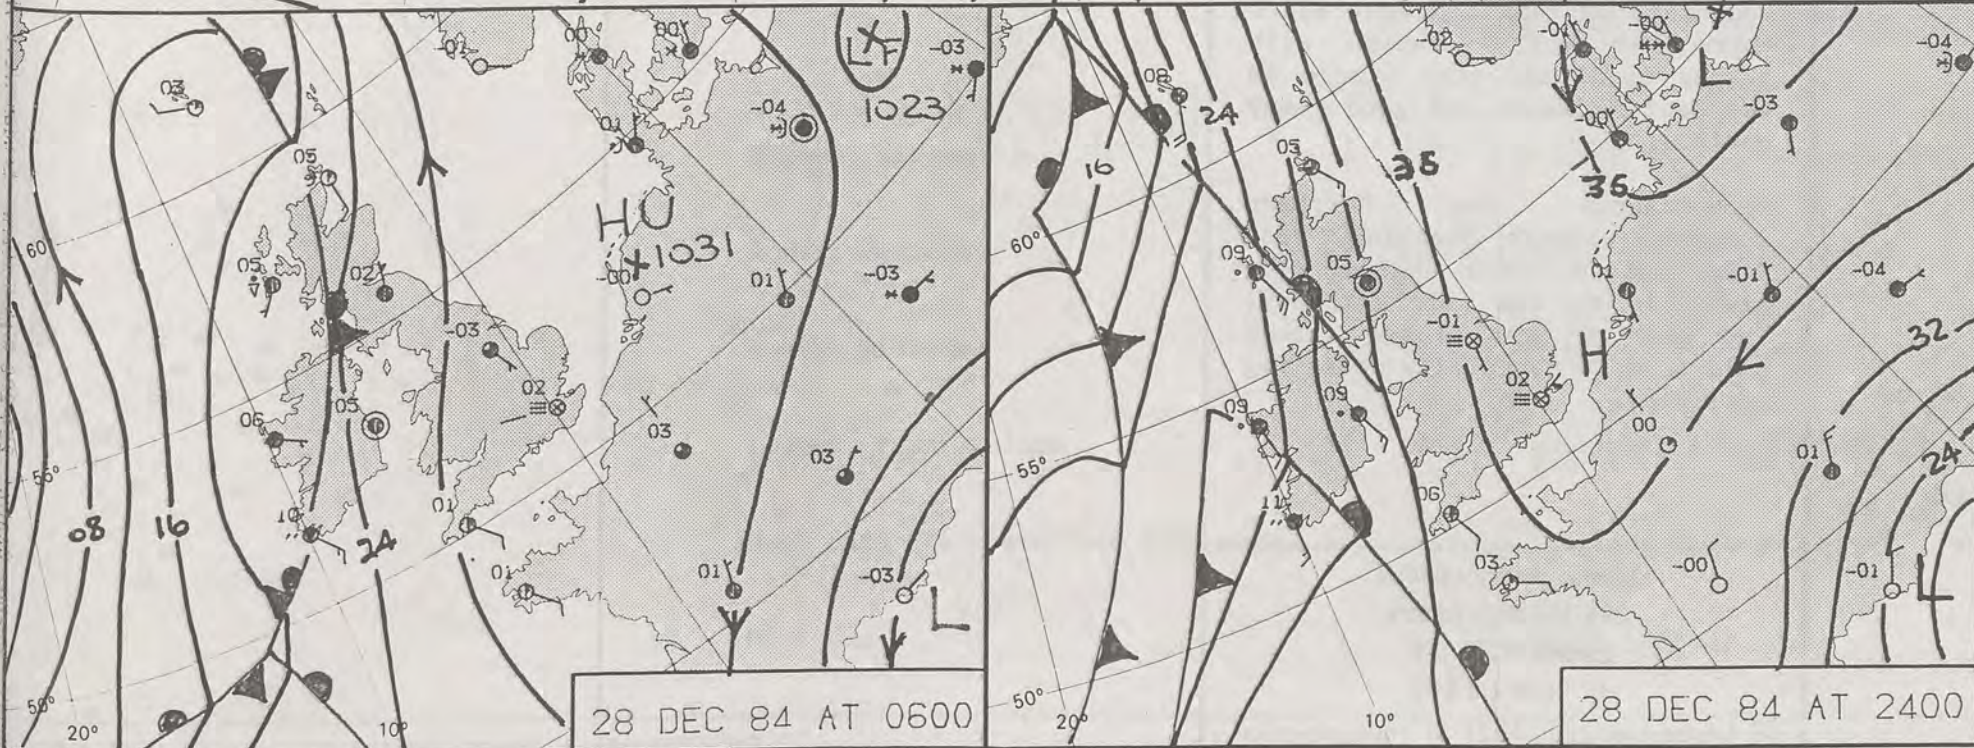 03
-01
00
00
L F
1023
-03
-04
01
05
60
H U
1031
05
02
-00
01
-03
-03
02
06
05
03
03
55°
08
16
10
24
01
01
01
-03
L
50°
20°
10°
28 DEC 84 AT 0600
-02
-01
-00
L
-04
08
24
-03
-00
16
05
36
60°
09
05
01
-01
-04
-01
H
32
02
09
09
00
01
24
55°
11
06
03
-00
-01
L
50°
20°
10°
28 DEC 84 AT 2400